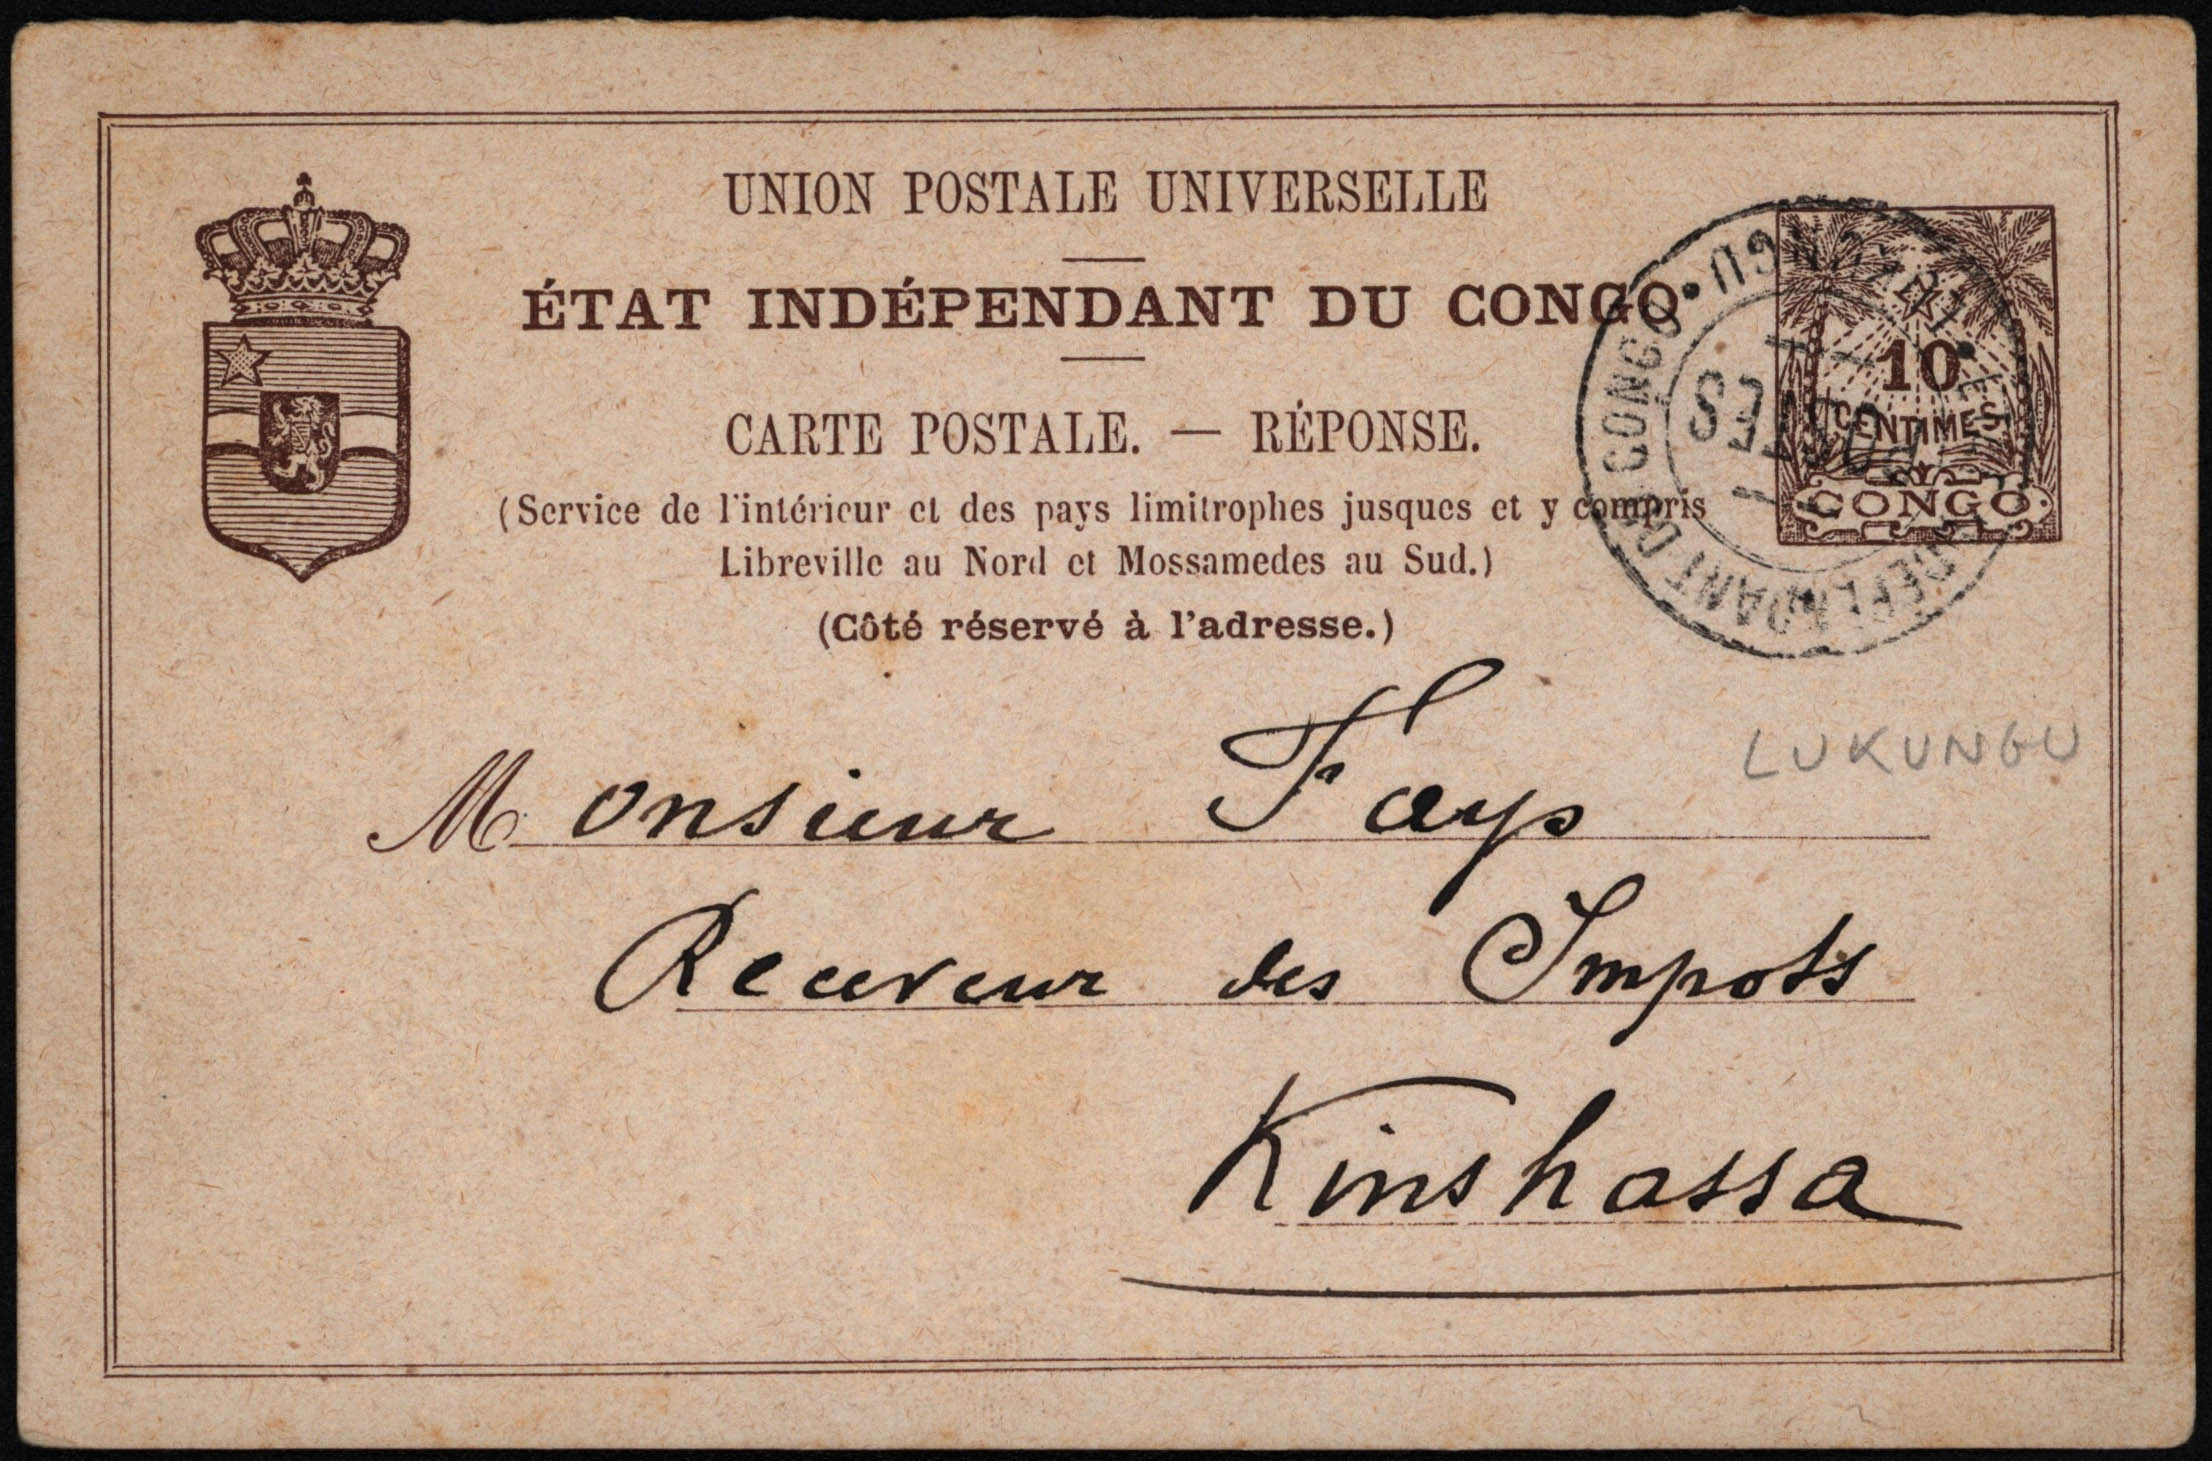 UNION POSTALE UNIVERSELLE
ÉTAT INDÉPENDANT DU CONGO
CARTE POSTALE. — RÉPONSE.
(Service de l'intérieur et des pays limitrophes jusques et y compris
Libreville au Nord et Mossamedes au Sud.)
(Côté réservé à l'adresse.)
10
CENTIMES
CONGO
INDEPENDANT DU CONGO
LUKUNGU
Monsieur Fays
Receveur des Impots
Kinshassa